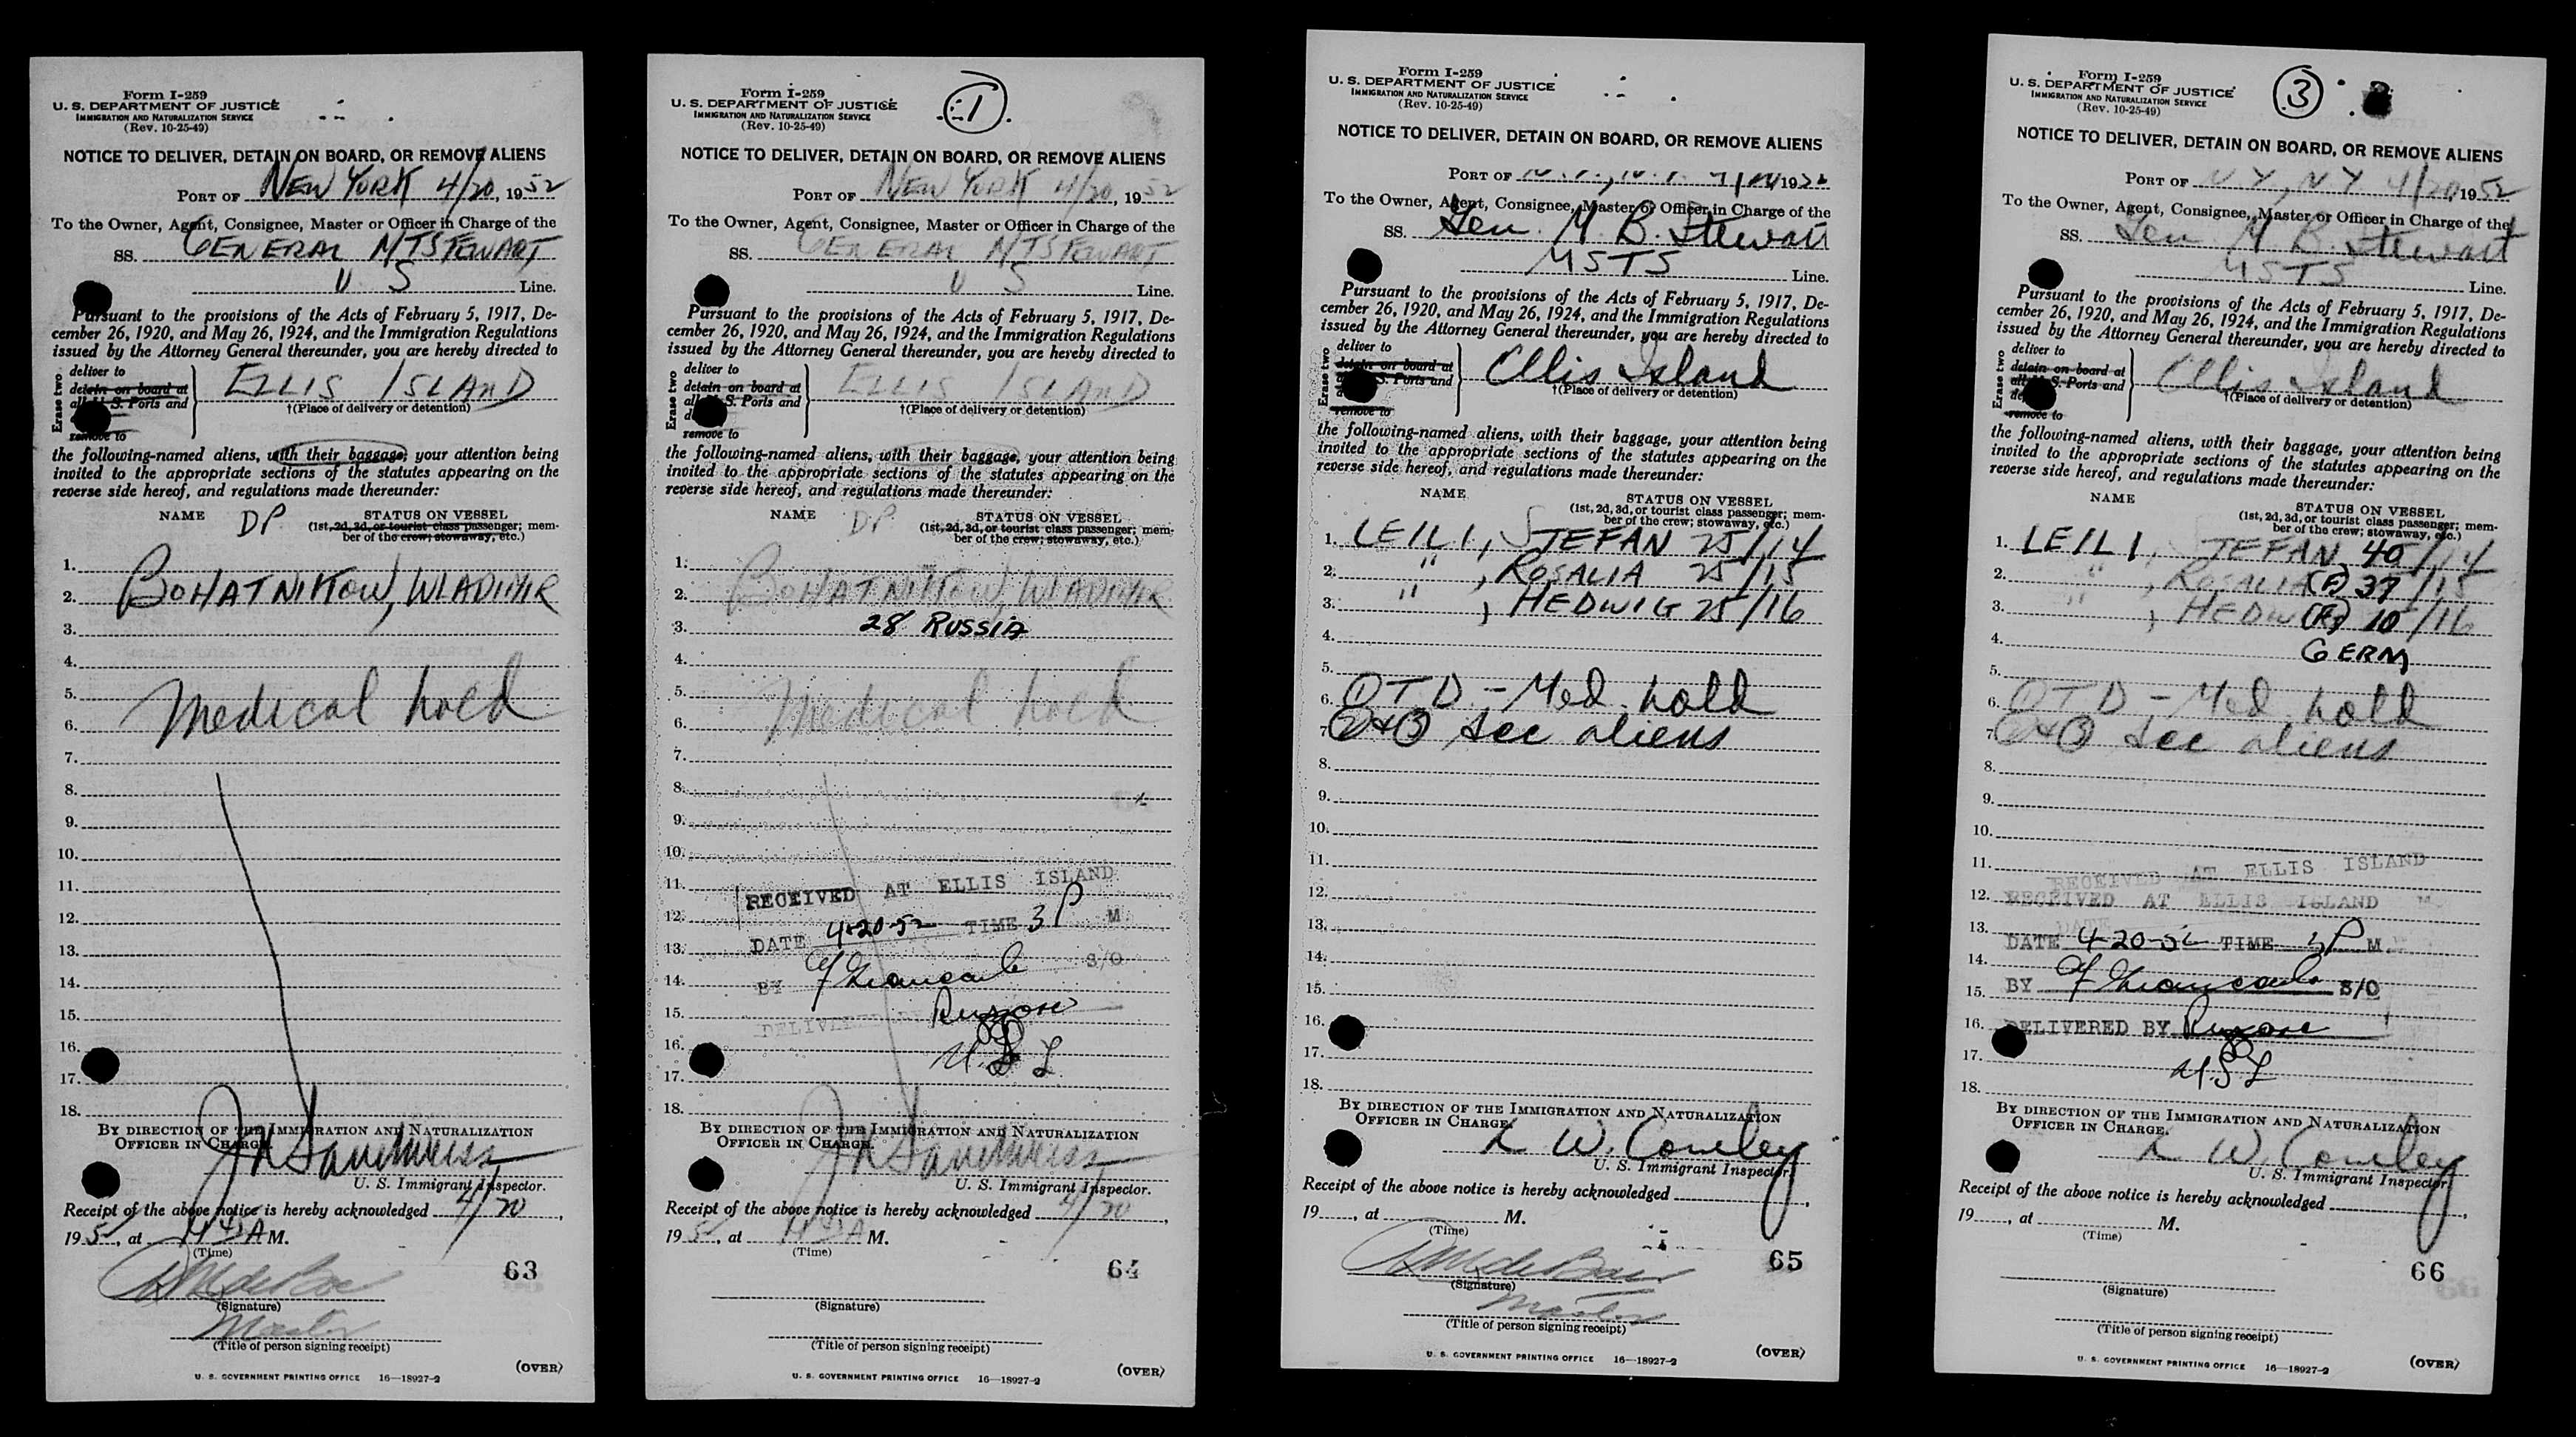 Form I-259
U. S. DEPARTMENT OF JUSTICE
IMMIGRATION AND NATURALIZATION SERVICE
(Rev. 10-25-49)
NOTICE TO DELIVER, DETAIN ON BOARD, OR REMOVE ALIENS
PORT OF NEW YORK 4/20, 1952
To the Owner, Agent, Consignee, Master or Officer in Charge of the
SS. GENERAL M STEWART
U S Line.
Pursuant to the provisions of the Acts of February 5, 1917, De-
cember 26, 1920, and May 26, 1924, and the Immigration Regulations
issued by the Attorney General thereunder, you are hereby directed to
Erase two
deliver to
detain on board at
all U. S. Ports and
remove to
ELLIS ISLAND
†(Place of delivery or detention)
the following-named aliens, with their baggage, your attention being
invited to the appropriate sections of the statutes appearing on the
reverse side hereof, and regulations made thereunder:
NAME DP STATUS ON VESSEL
(1st, 2d, 3d, or tourist class passenger; mem-
ber of the crew; stowaway, etc.)
1.
2. BOHATNIKOW, WLADIMIR
3.
4.
5.
6. Medical hold
7.
8.
9.
10.
11.
12.
13.
14.
15.
16.
17.
18.
BY DIRECTION OF THE IMMIGRATION AND NATURALIZATION
OFFICER IN CHARGE.
U. S. Immigrant Inspector.
Receipt of the above notice is hereby acknowledged 4/20,
195, at A M.
(Time)
63
(Signature)
Master
(Title of person signing receipt)
(OVER)
U. S. GOVERNMENT PRINTING OFFICE 16—18927-2
Form I-259
U. S. DEPARTMENT OF JUSTICE
IMMIGRATION AND NATURALIZATION SERVICE
(Rev. 10-25-49)
1
NOTICE TO DELIVER, DETAIN ON BOARD, OR REMOVE ALIENS
PORT OF NEW YORK 4/20, 1952
To the Owner, Agent, Consignee, Master or Officer in Charge of the
SS. GENERAL M STEWART
U S Line.
Pursuant to the provisions of the Acts of February 5, 1917, De-
cember 26, 1920, and May 26, 1924, and the Immigration Regulations
issued by the Attorney General thereunder, you are hereby directed to
Erase two
deliver to
detain on board at
all U. S. Ports and
remove to
ELLIS ISLAND
†(Place of delivery or detention)
the following-named aliens, with their baggage, your attention being
invited to the appropriate sections of the statutes appearing on the
reverse side hereof, and regulations made thereunder:
NAME DP STATUS ON VESSEL
(1st, 2d, 3d, or tourist class passenger; mem-
ber of the crew; stowaway, etc.)
1.
2. BOHATNIKOW, WLADIMIR
3. 28 RUSSIA
4.
5.
6. Medical hold
7.
8.
9.
10.
11. RECEIVED AT ELLIS ISLAND
12.
13. DATE 4-20-52 TIME 3 P M
14. BY S/O
15. DELIVERED BY
16. U S L
17.
18.
BY DIRECTION OF THE IMMIGRATION AND NATURALIZATION
OFFICER IN CHARGE.
U. S. Immigrant Inspector.
Receipt of the above notice is hereby acknowledged 4/20,
195, at A M.
(Time)
64
(Signature)
(Title of person signing receipt)
(OVER)
U. S. GOVERNMENT PRINTING OFFICE 16—18927-2
Form I-259
U. S. DEPARTMENT OF JUSTICE
IMMIGRATION AND NATURALIZATION SERVICE
(Rev. 10-25-49)
NOTICE TO DELIVER, DETAIN ON BOARD, OR REMOVE ALIENS
PORT OF N.Y., N.Y. 4/20 1952
To the Owner, Agent, Consignee, Master or Officer in Charge of the
SS. Gen. M. B. Stewart
MSTS Line.
Pursuant to the provisions of the Acts of February 5, 1917, De-
cember 26, 1920, and May 26, 1924, and the Immigration Regulations
issued by the Attorney General thereunder, you are hereby directed to
Erase two
deliver to
detain on board at
all U. S. Ports and
remove to
Ellis Island
†(Place of delivery or detention)
the following-named aliens, with their baggage, your attention being
invited to the appropriate sections of the statutes appearing on the
reverse side hereof, and regulations made thereunder:
NAME STATUS ON VESSEL
(1st, 2d, 3d, or tourist class passenger; mem-
ber of the crew; stowaway, etc.)
1. LEILI, STEFAN 25/14
2. " , ROSALIA 25/15
3. " , HEDWIG 25/16
4.
5.
6. ① T D - Med. hold
7. ②+③ acc aliens
8.
9.
10.
11.
12.
13.
14.
15.
16.
17.
18.
BY DIRECTION OF THE IMMIGRATION AND NATURALIZATION
OFFICER IN CHARGE.
L W. Conley
U. S. Immigrant Inspector.
Receipt of the above notice is hereby acknowledged ,
19 , at M.
(Time)
65
(Signature)
Master
(Title of person signing receipt)
(OVER)
U. S. GOVERNMENT PRINTING OFFICE 16—18927-2
Form I-259
U. S. DEPARTMENT OF JUSTICE
IMMIGRATION AND NATURALIZATION SERVICE
(Rev. 10-25-49)
3
NOTICE TO DELIVER, DETAIN ON BOARD, OR REMOVE ALIENS
PORT OF N Y, N Y 4/20, 1952
To the Owner, Agent, Consignee, Master or Officer in Charge of the
SS. Gen. M B. Stewart
MSTS Line.
Pursuant to the provisions of the Acts of February 5, 1917, De-
cember 26, 1920, and May 26, 1924, and the Immigration Regulations
issued by the Attorney General thereunder, you are hereby directed to
Erase two
deliver to
detain on board at
all U. S. Ports and
remove to
Ellis Island
†(Place of delivery or detention)
the following-named aliens, with their baggage, your attention being
invited to the appropriate sections of the statutes appearing on the
reverse side hereof, and regulations made thereunder:
NAME STATUS ON VESSEL
(1st, 2d, 3d, or tourist class passenger; mem-
ber of the crew; stowaway, etc.)
1. LEILI, STEFAN 40/14
2. " , ROSALIA (F) 37/15
3. " , HEDW (F) 10/16
4. GERM
5.
6. ① T D - Med. hold
7. ②+③ acc aliens
8.
9.
10.
11. RECEIVED AT ELLIS ISLAND
12. RECEIVED AT ELLIS ISLAND M
13. DATE 4-20-52 TIME 3 P M.
14.
15. BY S/O
16. DELIVERED BY
17. U.S L
18.
BY DIRECTION OF THE IMMIGRATION AND NATURALIZATION
OFFICER IN CHARGE.
L W. Conley
U. S. Immigrant Inspector
Receipt of the above notice is hereby acknowledged ,
19 , at M.
(Time)
66
(Signature)
(Title of person signing receipt)
(OVER)
U. S. GOVERNMENT PRINTING OFFICE 16—18927-2